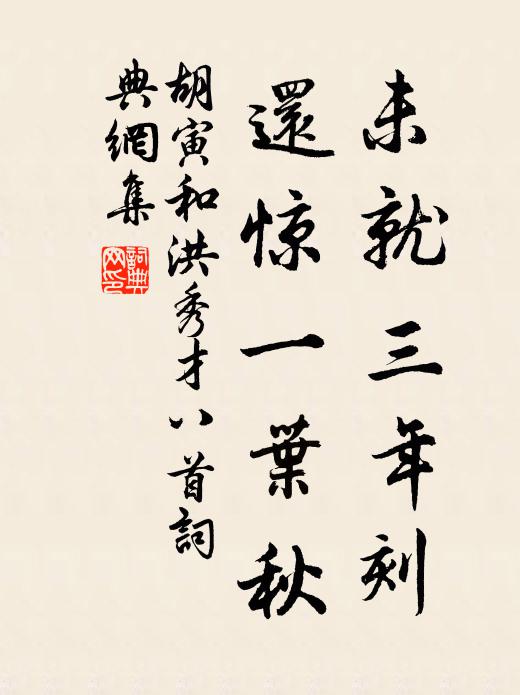 未就三年刻
還惊一葉秋
胡寅和洪秀才八首詞
典網集
詞典
网印